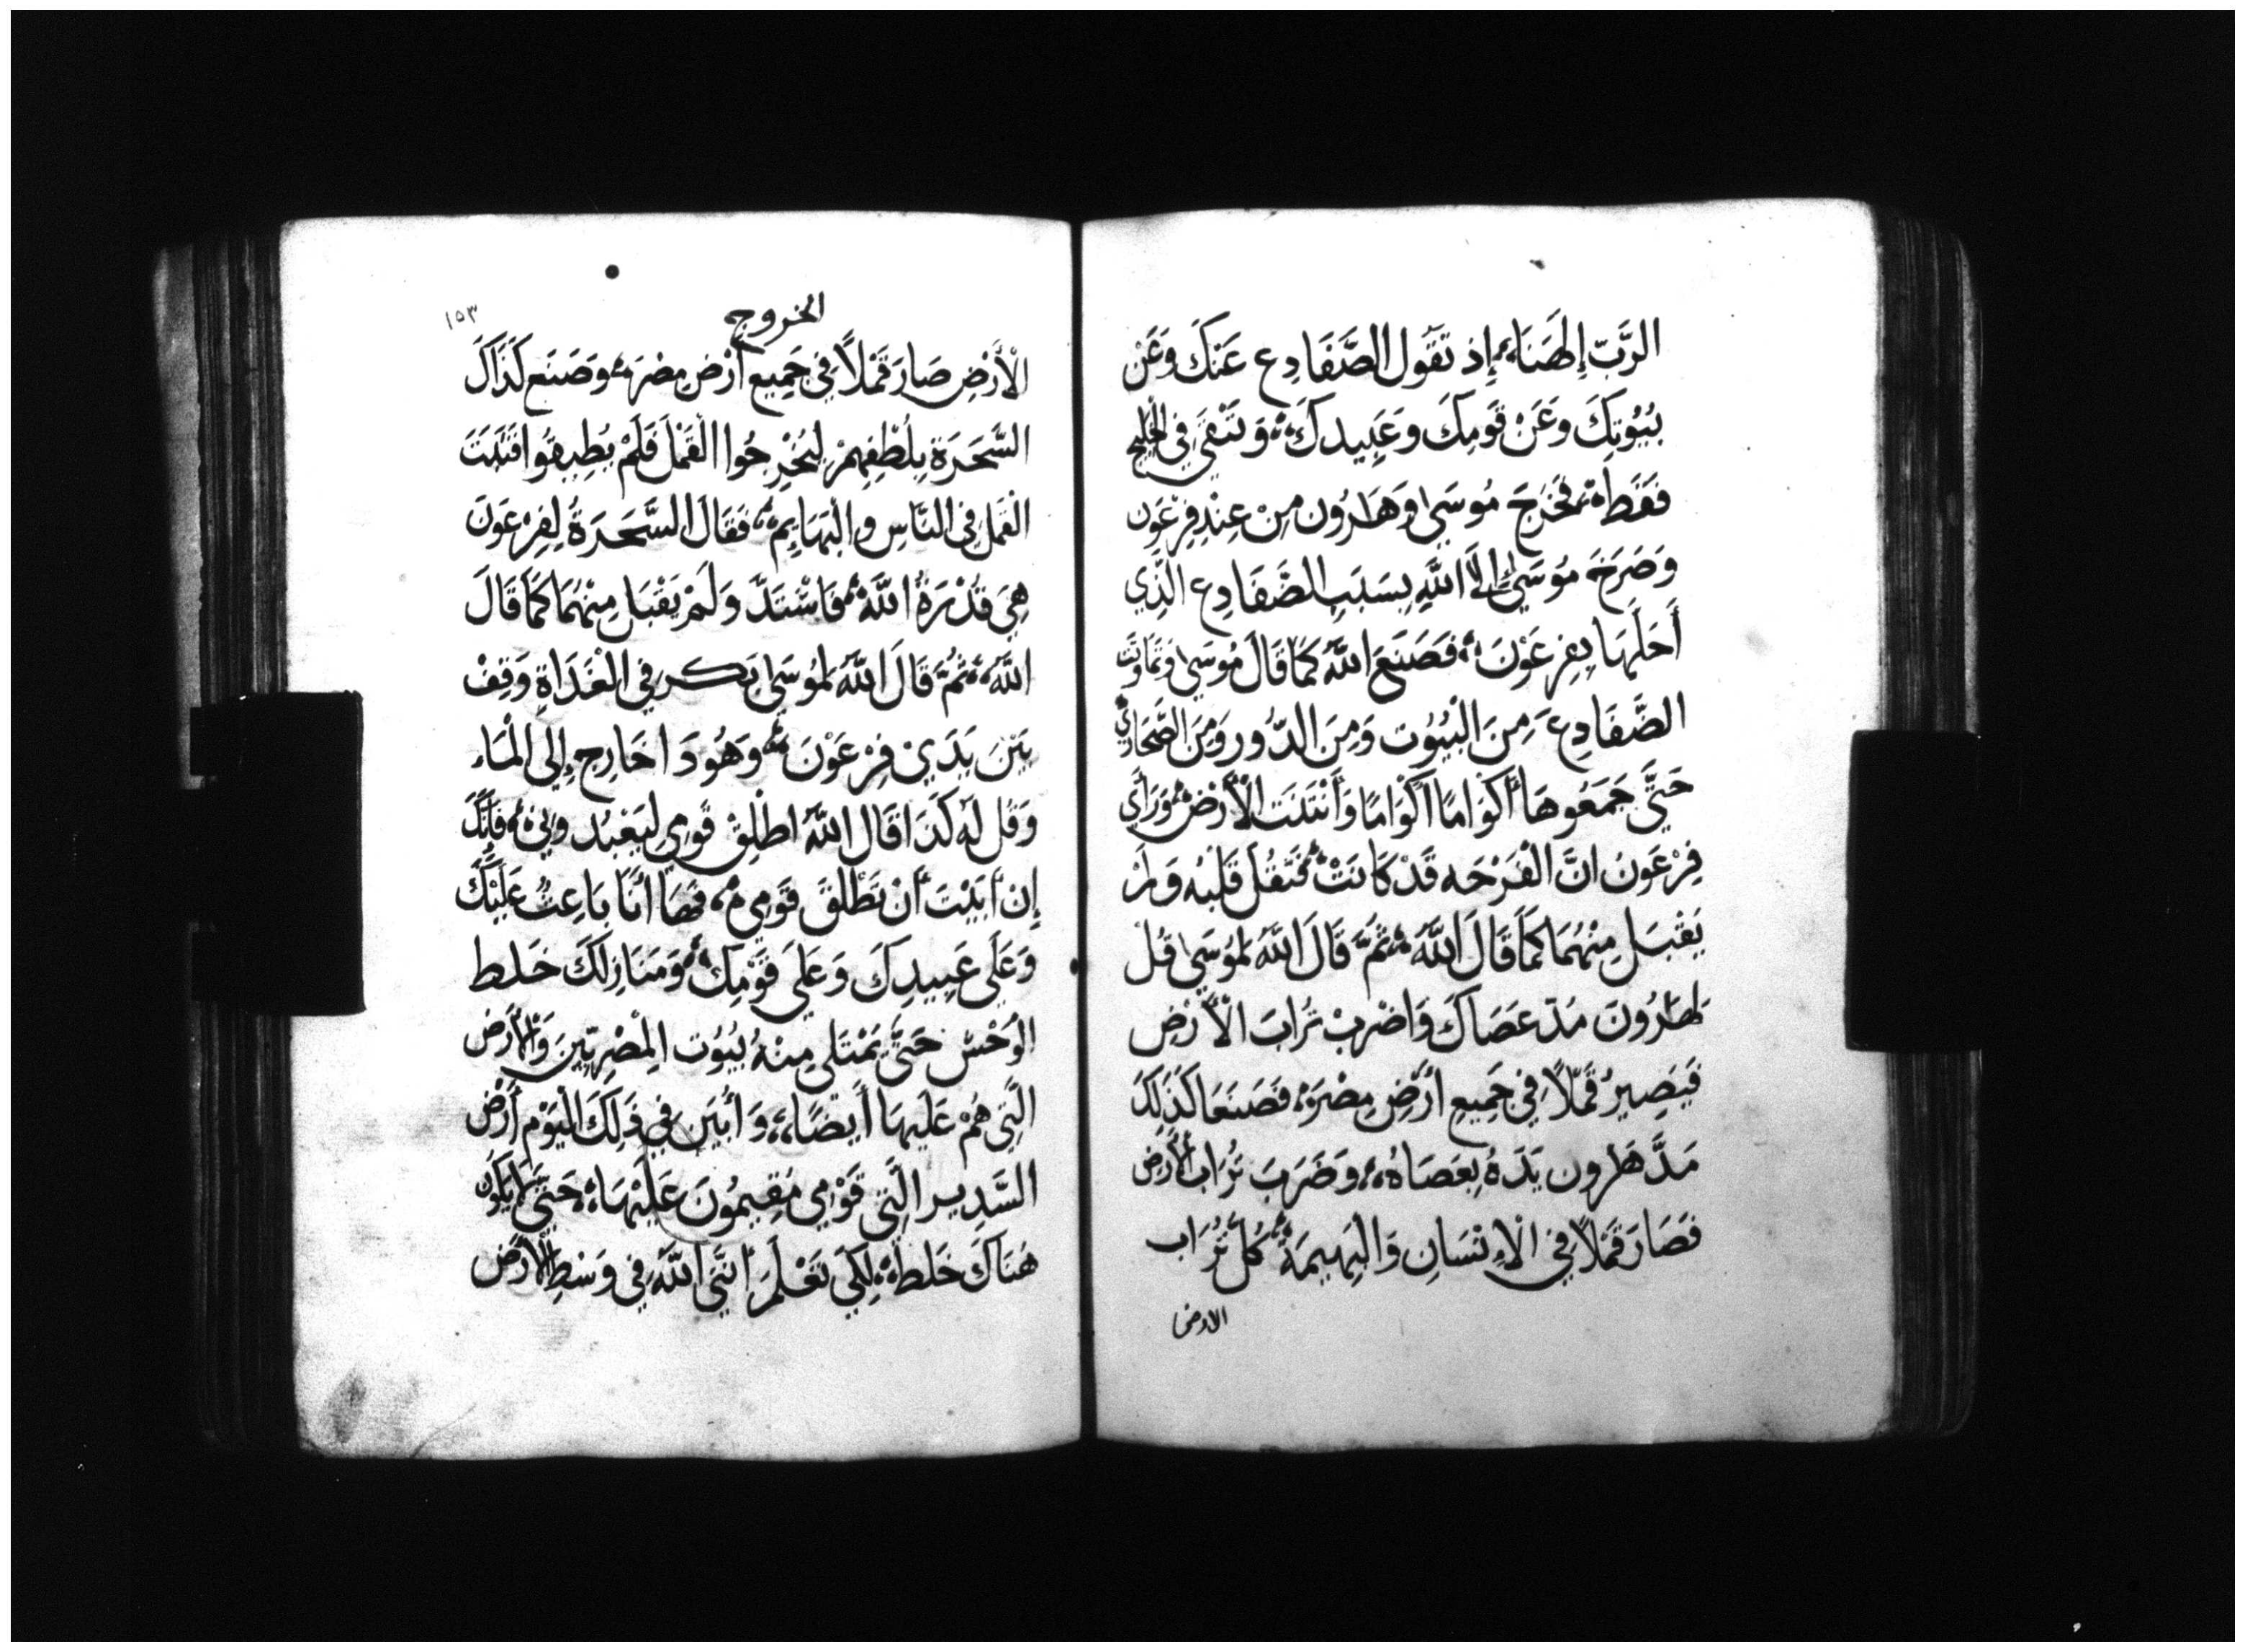 الرَّبّ إِلٰهَنَا، إِذ تَقُول الضَّفَادِع عَنكَ وَعَنْ
بُيُوتِكَ وَعَنْ قَومِكَ وَعَبِيدكَ، وَتَبْقَى فِي الْخَلِيج
فَقَط، فَخَرَجَ مُوسَى وَهَارُون مِنْ عِنْدِ فِرْعَون
وَصَرَخَ مُوسَى إِلَى اللَّهِ بِسَبَبِ الضَّفَادِع الَّذِي
أَحَلَهَا بِفِرعَوْنَ، فَصَنَعَ اللَّهُ كَمَا قَالَ مُوسَى وَتمَاوتَت
الضَّفَادِعَ مِنَ الْبُيُوت وَمِنَ الدُّور وَمِنَ الصَّحَارِي
حَتَّى جَمَعُوهَا أَكْوَامًا أَكْوَامًا وَأَنْتَنَت الْأَرْض، وَرَأَى
فِرْعَونُ انَّ الْفَرْحَه قَدْ كَانَتْ، فَثَقُلَ قَلْبُه وَلَمْ
يَقْبَل مِنْهُمَا كَمَا قَالَ اللَّهُ، ثُمَّ قَالَ اللَّهُ لمُوسَى قُل
لهَارُونَ مَدّ عَصَاكَ وَاضْرِبْ تُرَابَ الْأَرْض
فَيَصِيرُ قَمْلاً فِي جَمِيعِ أَرْضِ مِصْرَ، فَصَنَعَا كَذَلِكَ
مَدَّ هَارون يَدَهُ بِعَصَاهُ، وَضَرَبَ تُرَاب الْأَرْض
فَصَارَ قَمْلاً فِي الْإِنْسَانِ وَالْبَهِيمَةُ، كُلّ تُرَاب
الارض
الخروج
١٥٣
الْأَرْضِ صَارَ قَمْلاً فِي جَمِيع أَرْض مِصْرَ، وَصَنَع كَذَاكَ
السَّحَرَة بِلُطْفِهِمْ لِيُخْرِجُوا الْقَمْلَ فَلَمْ يُطِيقُوا فَثَبَتَ
الْقَمْل فِي النَّاسِ وَالْبَهَايِم، فَقَالَ السَّحَرَةُ لِفِرْعَونَ
هِيَ قُدْرَةُ اللَّهُ، فَاشْتَدَّ وَلَمْ يَقْبَل مِنْهُمَا كَمَا قَالَ
اللَّهُ، ثُمَّ قَالَ اللَّهُ لِمُوسَى بَكر فِي الْغَدَاةِ وَقِفْ
بَيْنَ يَدَيْ فِرْعَوْنَ، وَهُو دَا خَارِج إِلَى الْمَاء
وَقُل لَه كَذَا قَال اللَّهُ اطْلِقْ قَومِي لِيَعْبُدونِي، فَإِنَّكَ
إِن أَبَيْتَ أَنْ تُطْلِقَ قَوْمِي، فَهَا أَنَا بَاعِثُ عَلَيْكَ
وَعَلَى عَبِيدِكَ وَعَلَى قَوْمِكَ، وَمَنَازِلكَ خَلط
الْوَحْش حَتَّى يَمْتَلِي مِنْهُ بُيُوت الْمِصْرِيِّينَ وَالْأَرْض
الَّتِي هُمْ عَلَيهَا أَيضًا، وَأُبَيِّن فِي ذَلِكَ الْيَوْم أَرْض
السَّدِير الَّتِي قَوْمِي مُقِيمُونَ عَلَيْهَا، حَتَّى لَا يَكُون
هُنَاكَ خَلط، لِكَي تَعْلَمَ أَنَّي اللَّهُ فِي وَسْطِ الْأَرْض